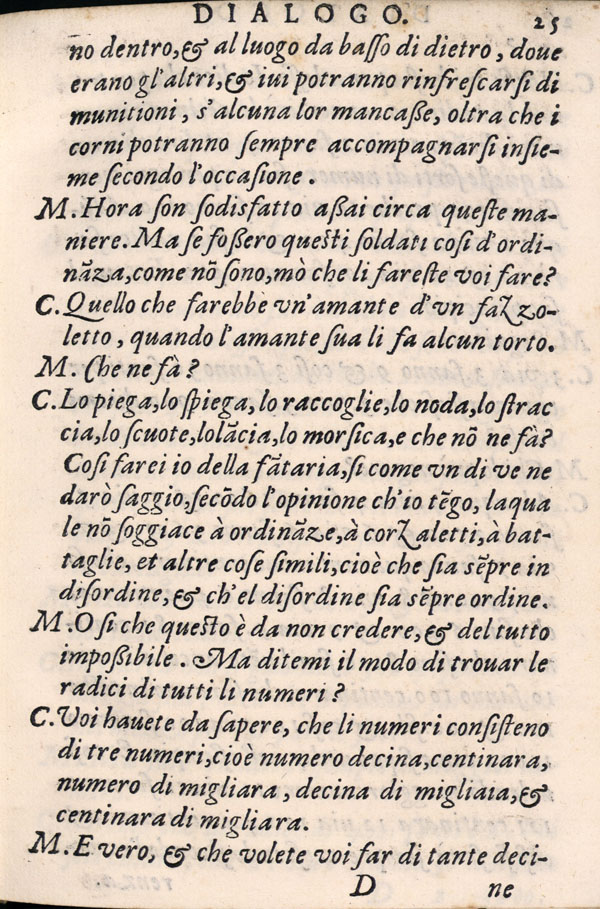 DIALOGO. 25
no dentro,& al luogo da basso di dietro, doue
erano gl'altri,& iui potranno rinfrescarsi di
munitioni, s'alcuna lor mancaße, oltra che i
corni potranno sempre accompagnarsi insie-
me secondo l'occasione.
M. Hora son sodisfatto aßai circa queste ma-
niere. Ma se foßero questi soldati cosi d'ordi-
nãza,come nõ sono,mò che li fareste voi fare?
C. Quello che farebbe vn'amante d'vn fazzo-
letto, quando l'amante sua li fa alcun torto.
M. Che ne fà?
C. Lo piega,lo spiega,lo raccoglie,lo noda,lo strac
cia,lo scuote,lolãcia,lo morsica,e che nõ ne fà?
Cosi farei io della fãtaria,si come vn di ve ne
darò saggio,secõdo l'opinione ch'io tẽgo, laqua
le nõ soggiace à ordinãze,à corzaletti,à bat-
taglie, et altre cose simili,cioè che sia sẽpre in
disordine,& ch'el disordine sia sẽpre ordine.
M. O si che questo è da non credere,& del tutto
impoßibile. Ma ditemi il modo di trouar le
radici di tutti li numeri?
C. Voi hauete da sapere, che li numeri consisteno
di tre numeri,cioè numero decina,centinara,
numero di migliara, decina di migliaia,&
centinara di migliara.
M. E vero, & che volete voi far di tante deci-
D ne